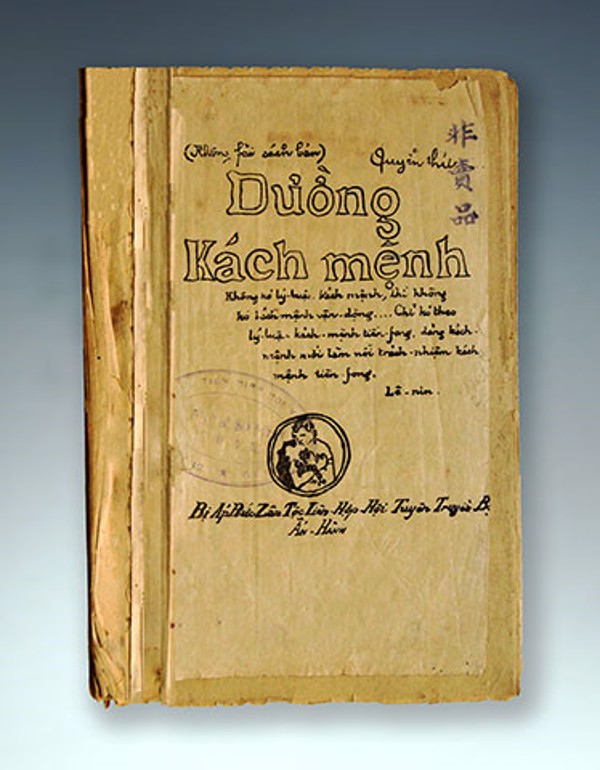 (Không fải sách bán) Quyển thứ
非賣品
Dường
Kách mệnh
Không kó lý-luận kách mệnh, thì không
kó kách mệnh vận-động.... Chỉ kó theo
lý-luận kách-mệnh tiền-fong, đảng kách-
mệnh mới làm nổi trách-nhiệm kách
mệnh tiền-fong.
Lê-nin.
Bị Áp Bức Zân Tộc Liên-Hợp-Hội Tuyên Truyền B.
Ấn-Hành